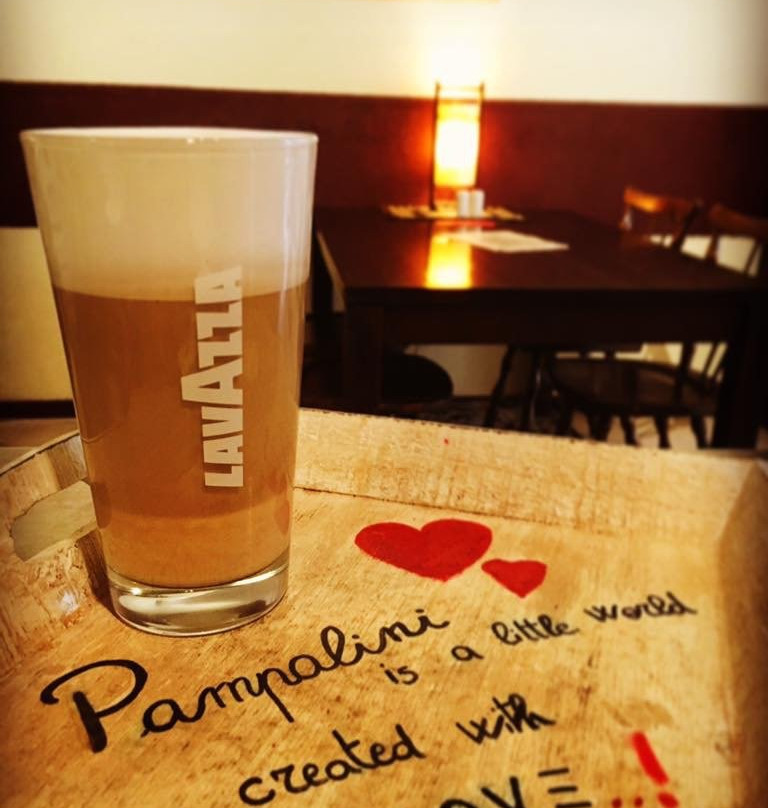 LAVAZZA
Pampalini
is a little world
created with
OVE..!